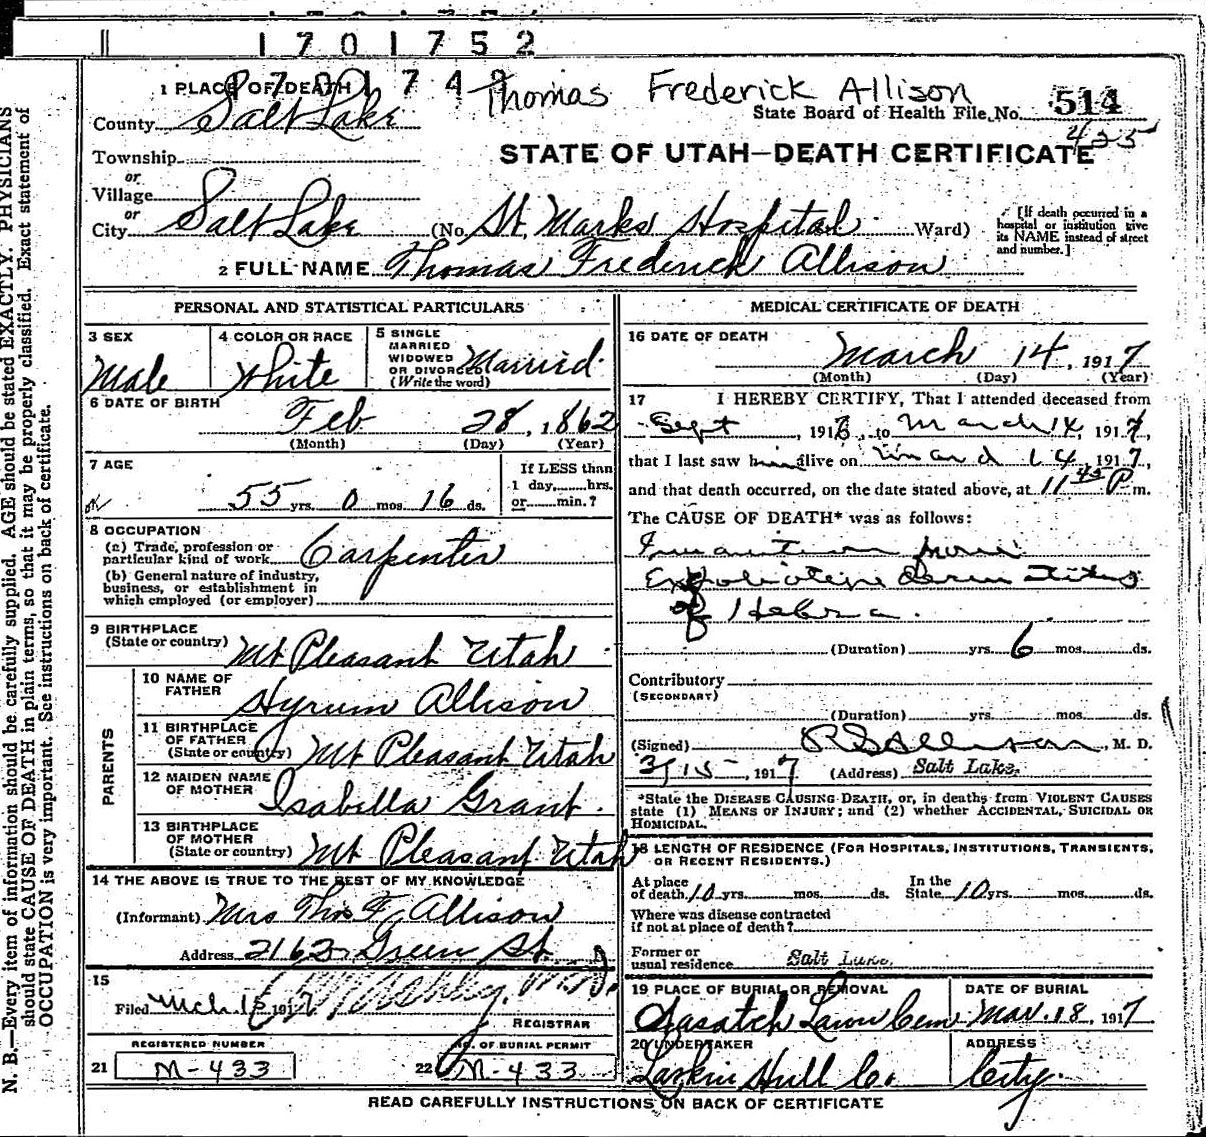 1701752
1 PLACE OF DEATH
Thomas Frederick Allison
State Board of Health File No. 514
425
County Salt Lake
Township
or
Village
or
City Salt Lake (No. St. Marks Hospital Ward)
[If death occurred in a hospital or institution give its NAME instead of street and number.]
STATE OF UTAH—DEATH CERTIFICATE
2 FULL NAME Thomas Frederick Allison
PERSONAL AND STATISTICAL PARTICULARS
3 SEX
Male
4 COLOR OR RACE
White
5 SINGLE
MARRIED
WIDOWED
OR DIVORCED
(Write the word)
Married
6 DATE OF BIRTH
Feb 28, 1862
(Month) (Day) (Year)
7 AGE
55 yrs. 0 mos. 16 ds.
If LESS than
1 day, hrs.
or min.?
8 OCCUPATION
(a) Trade, profession or
particular kind of work Carpenter
(b) General nature of industry,
business, or establishment in
which employed (or employer)
9 BIRTHPLACE
(State or country) Mt Pleasant Utah
PARENTS
10 NAME OF
FATHER
Hyrum Allison
11 BIRTHPLACE
OF FATHER
(State or country) Mt Pleasant Utah
12 MAIDEN NAME
OF MOTHER Isabella Grant.
13 BIRTHPLACE
OF MOTHER
(State or country) Mt Pleasant Utah
14 THE ABOVE IS TRUE TO THE BEST OF MY KNOWLEDGE
(Informant) Mrs Thos F. Allison
Address 2163 Green St.
15
Filed Mch. 15 1917
REGISTRAR
REGISTERED NUMBER
21 M-433
NO. OF BURIAL PERMIT
22 M-433
MEDICAL CERTIFICATE OF DEATH
16 DATE OF DEATH
March 14, 1917
(Month) (Day) (Year)
17 I HEREBY CERTIFY, That I attended deceased from
Sept, 1916, to March 14, 1917,
that I last saw him alive on March 14 1917,
and that death occurred, on the date stated above, at 11 45 P m.
The CAUSE OF DEATH* was as follows:
Inanition from
Exfoliative dermatitis
of Hebra.
(Duration) yrs. 6 mos. ds.
Contributory
(SECONDARY)
(Duration) yrs. mos. ds.
(Signed) R S Allison, M. D.
3/15, 1917 (Address) Salt Lake.
*State the DISEASE CAUSING DEATH, or, in deaths from VIOLENT CAUSES
state (1) MEANS OF INJURY; and (2) whether ACCIDENTAL, SUICIDAL OR
HOMICIDAL.
18 LENGTH OF RESIDENCE (FOR HOSPITALS, INSTITUTIONS, TRANSIENTS,
OR RECENT RESIDENTS.)
At place
of death 10 yrs. mos. ds.
In the
State 10 yrs. mos. ds.
Where was disease contracted
if not at place of death?
Former or
usual residence Salt Lake.
19 PLACE OF BURIAL OR REMOVAL
Wasatch Lawn Cem
DATE OF BURIAL
Mar. 18, 1917
20 UNDERTAKER
Larkin Hull Co.
ADDRESS
City.
READ CAREFULLY INSTRUCTIONS ON BACK OF CERTIFICATE
N. B.—Every item of information should be carefully supplied. AGE should be stated EXACTLY. PHYSICIANS
should state CAUSE OF DEATH in plain terms, so that it may be properly classified. Exact statement of
OCCUPATION is very important. See instructions on back of certificate.